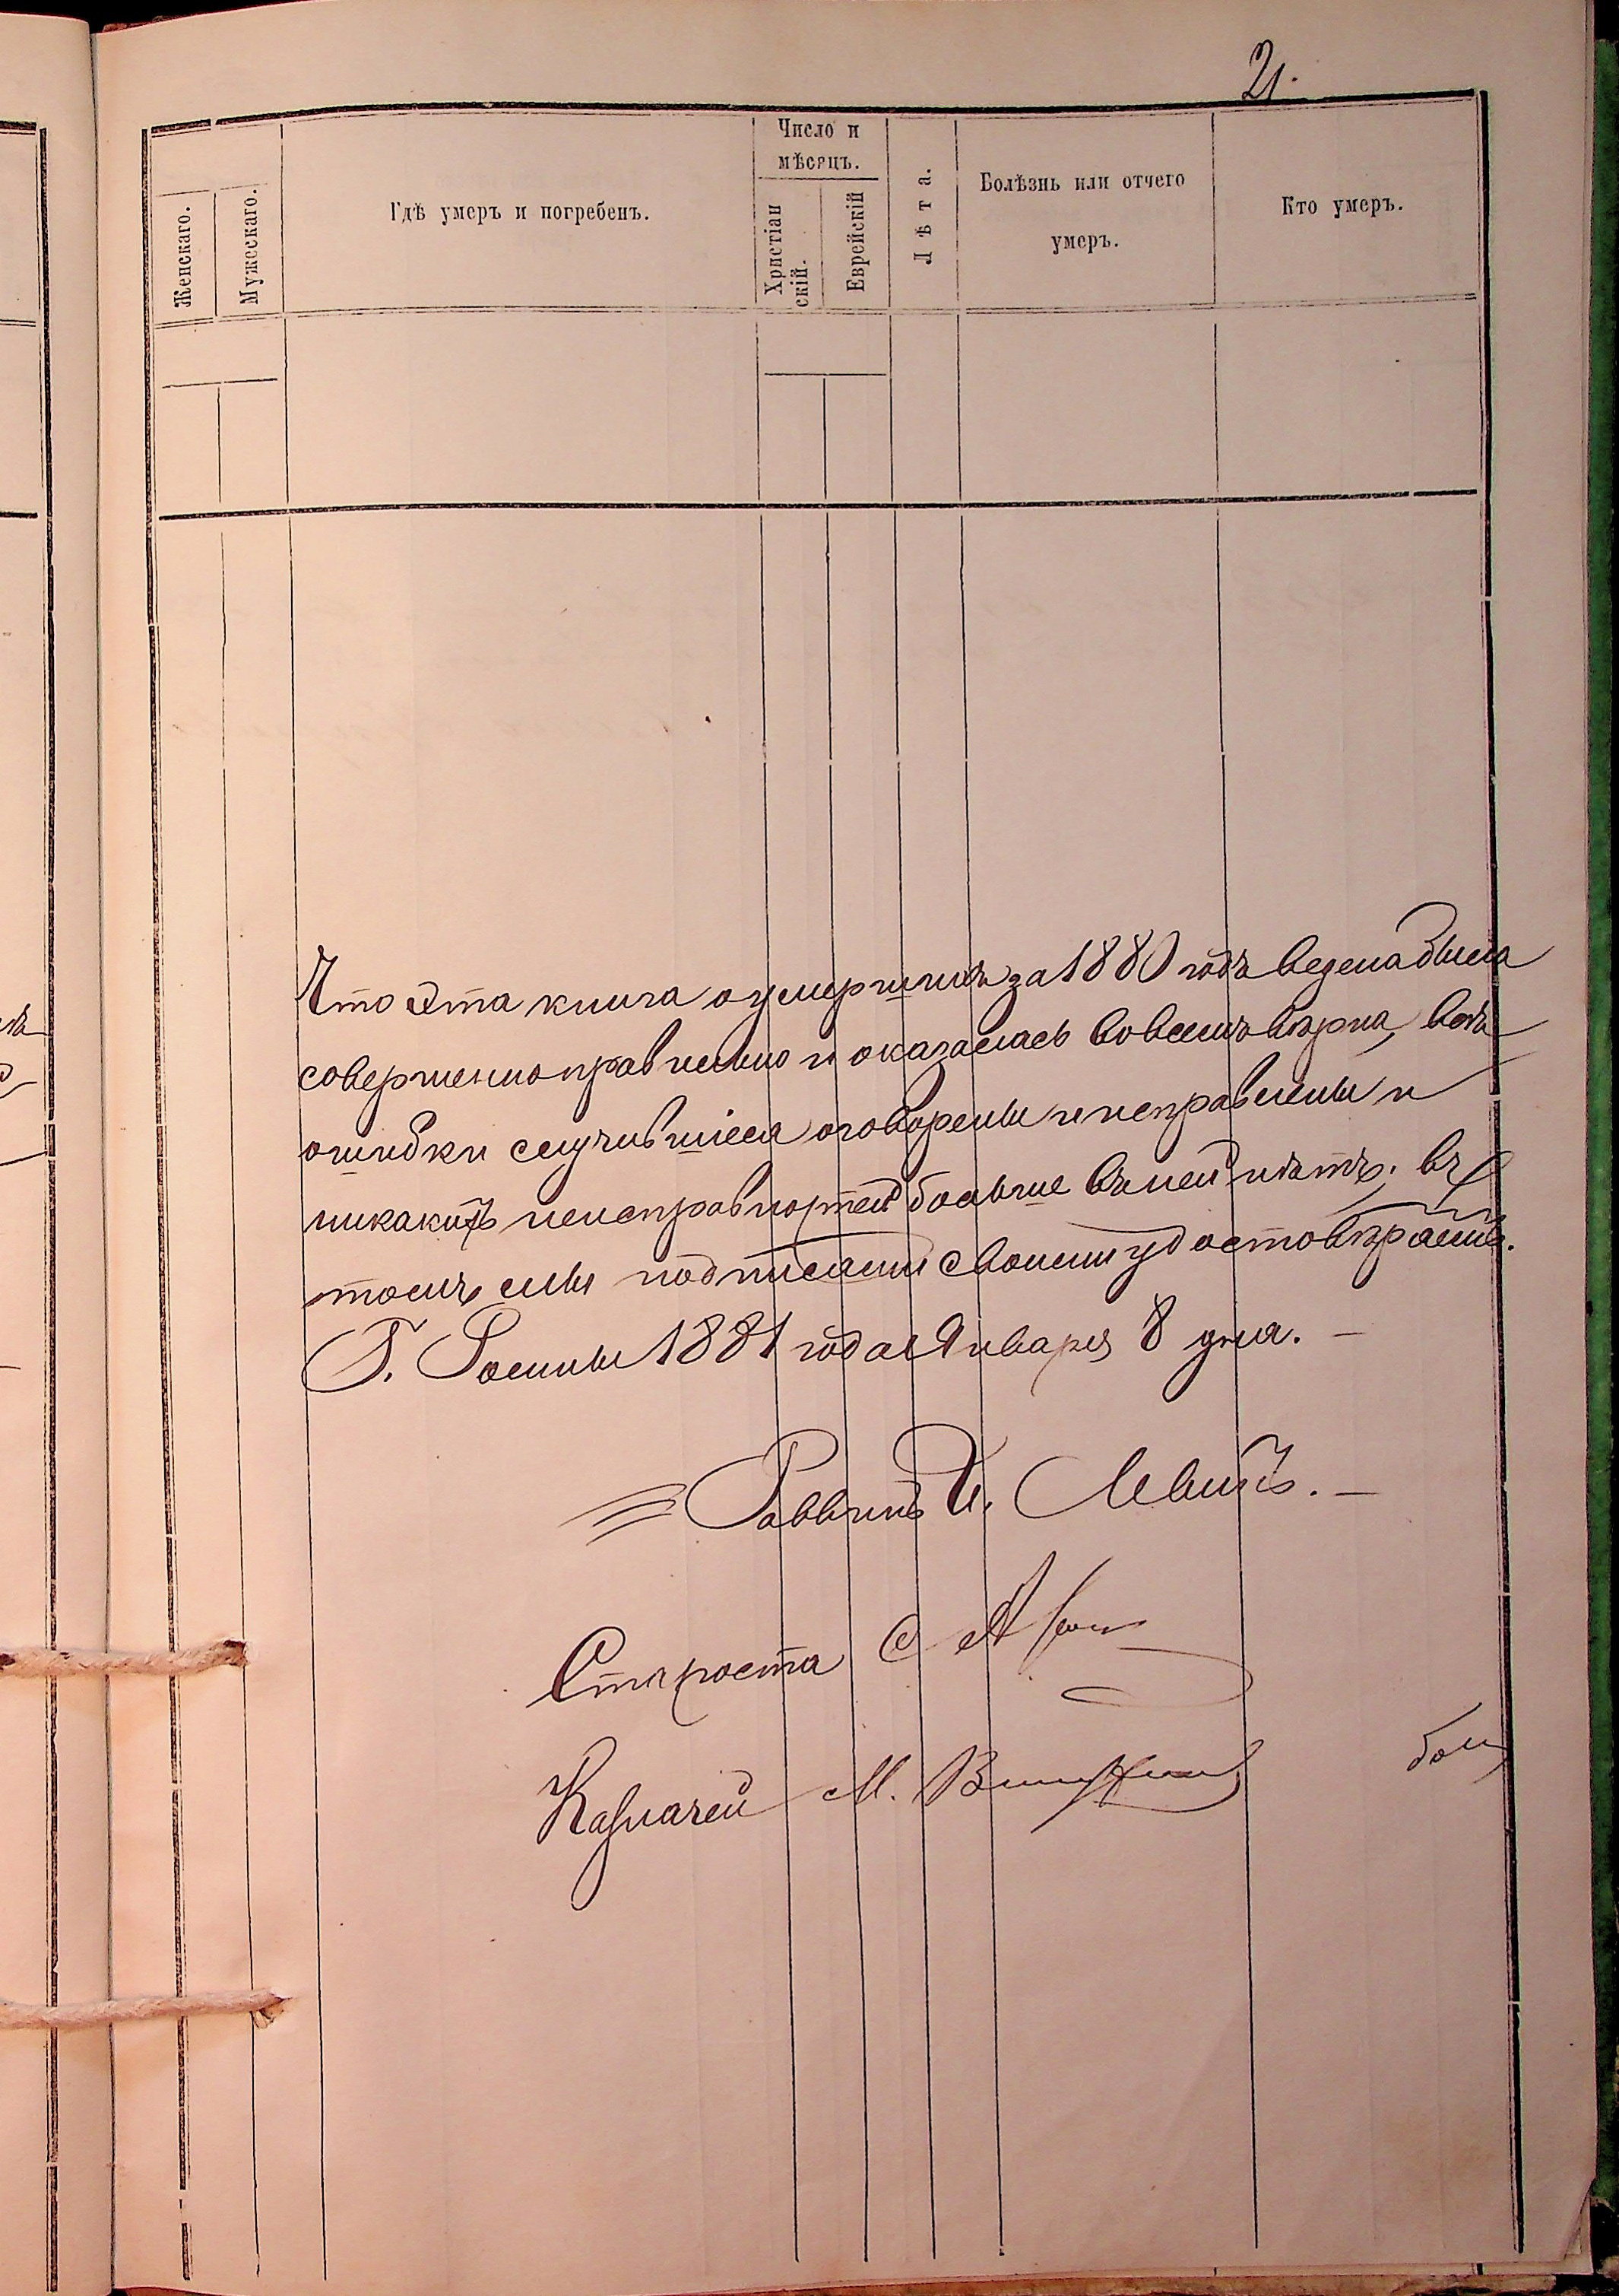 21.
Число и
мѣсяцъ.
Женскаго.
Мужескаго.
Гдѣ умеръ и погребенъ.
Христіан
скій.
Еврейскій
Лѣта.
Болѣзнь или отчего
умеръ.
Кто умеръ.
Что эта книга о умершихъ за 1880 годъ ведена была
совершенно правильно и оказалась во всемъ вѣрна, всѣ
ошибки случившіеся оговорены и исправлены и
никакихъ неисправностей больше въ ней нѣтъ; въ
томъ мы подписями своими удостовѣряемъ.
Г. Росіены 1881 года Января 8 дня. —
Раввинъ И. Левитъ. —
Староста С. А
Казначей М.